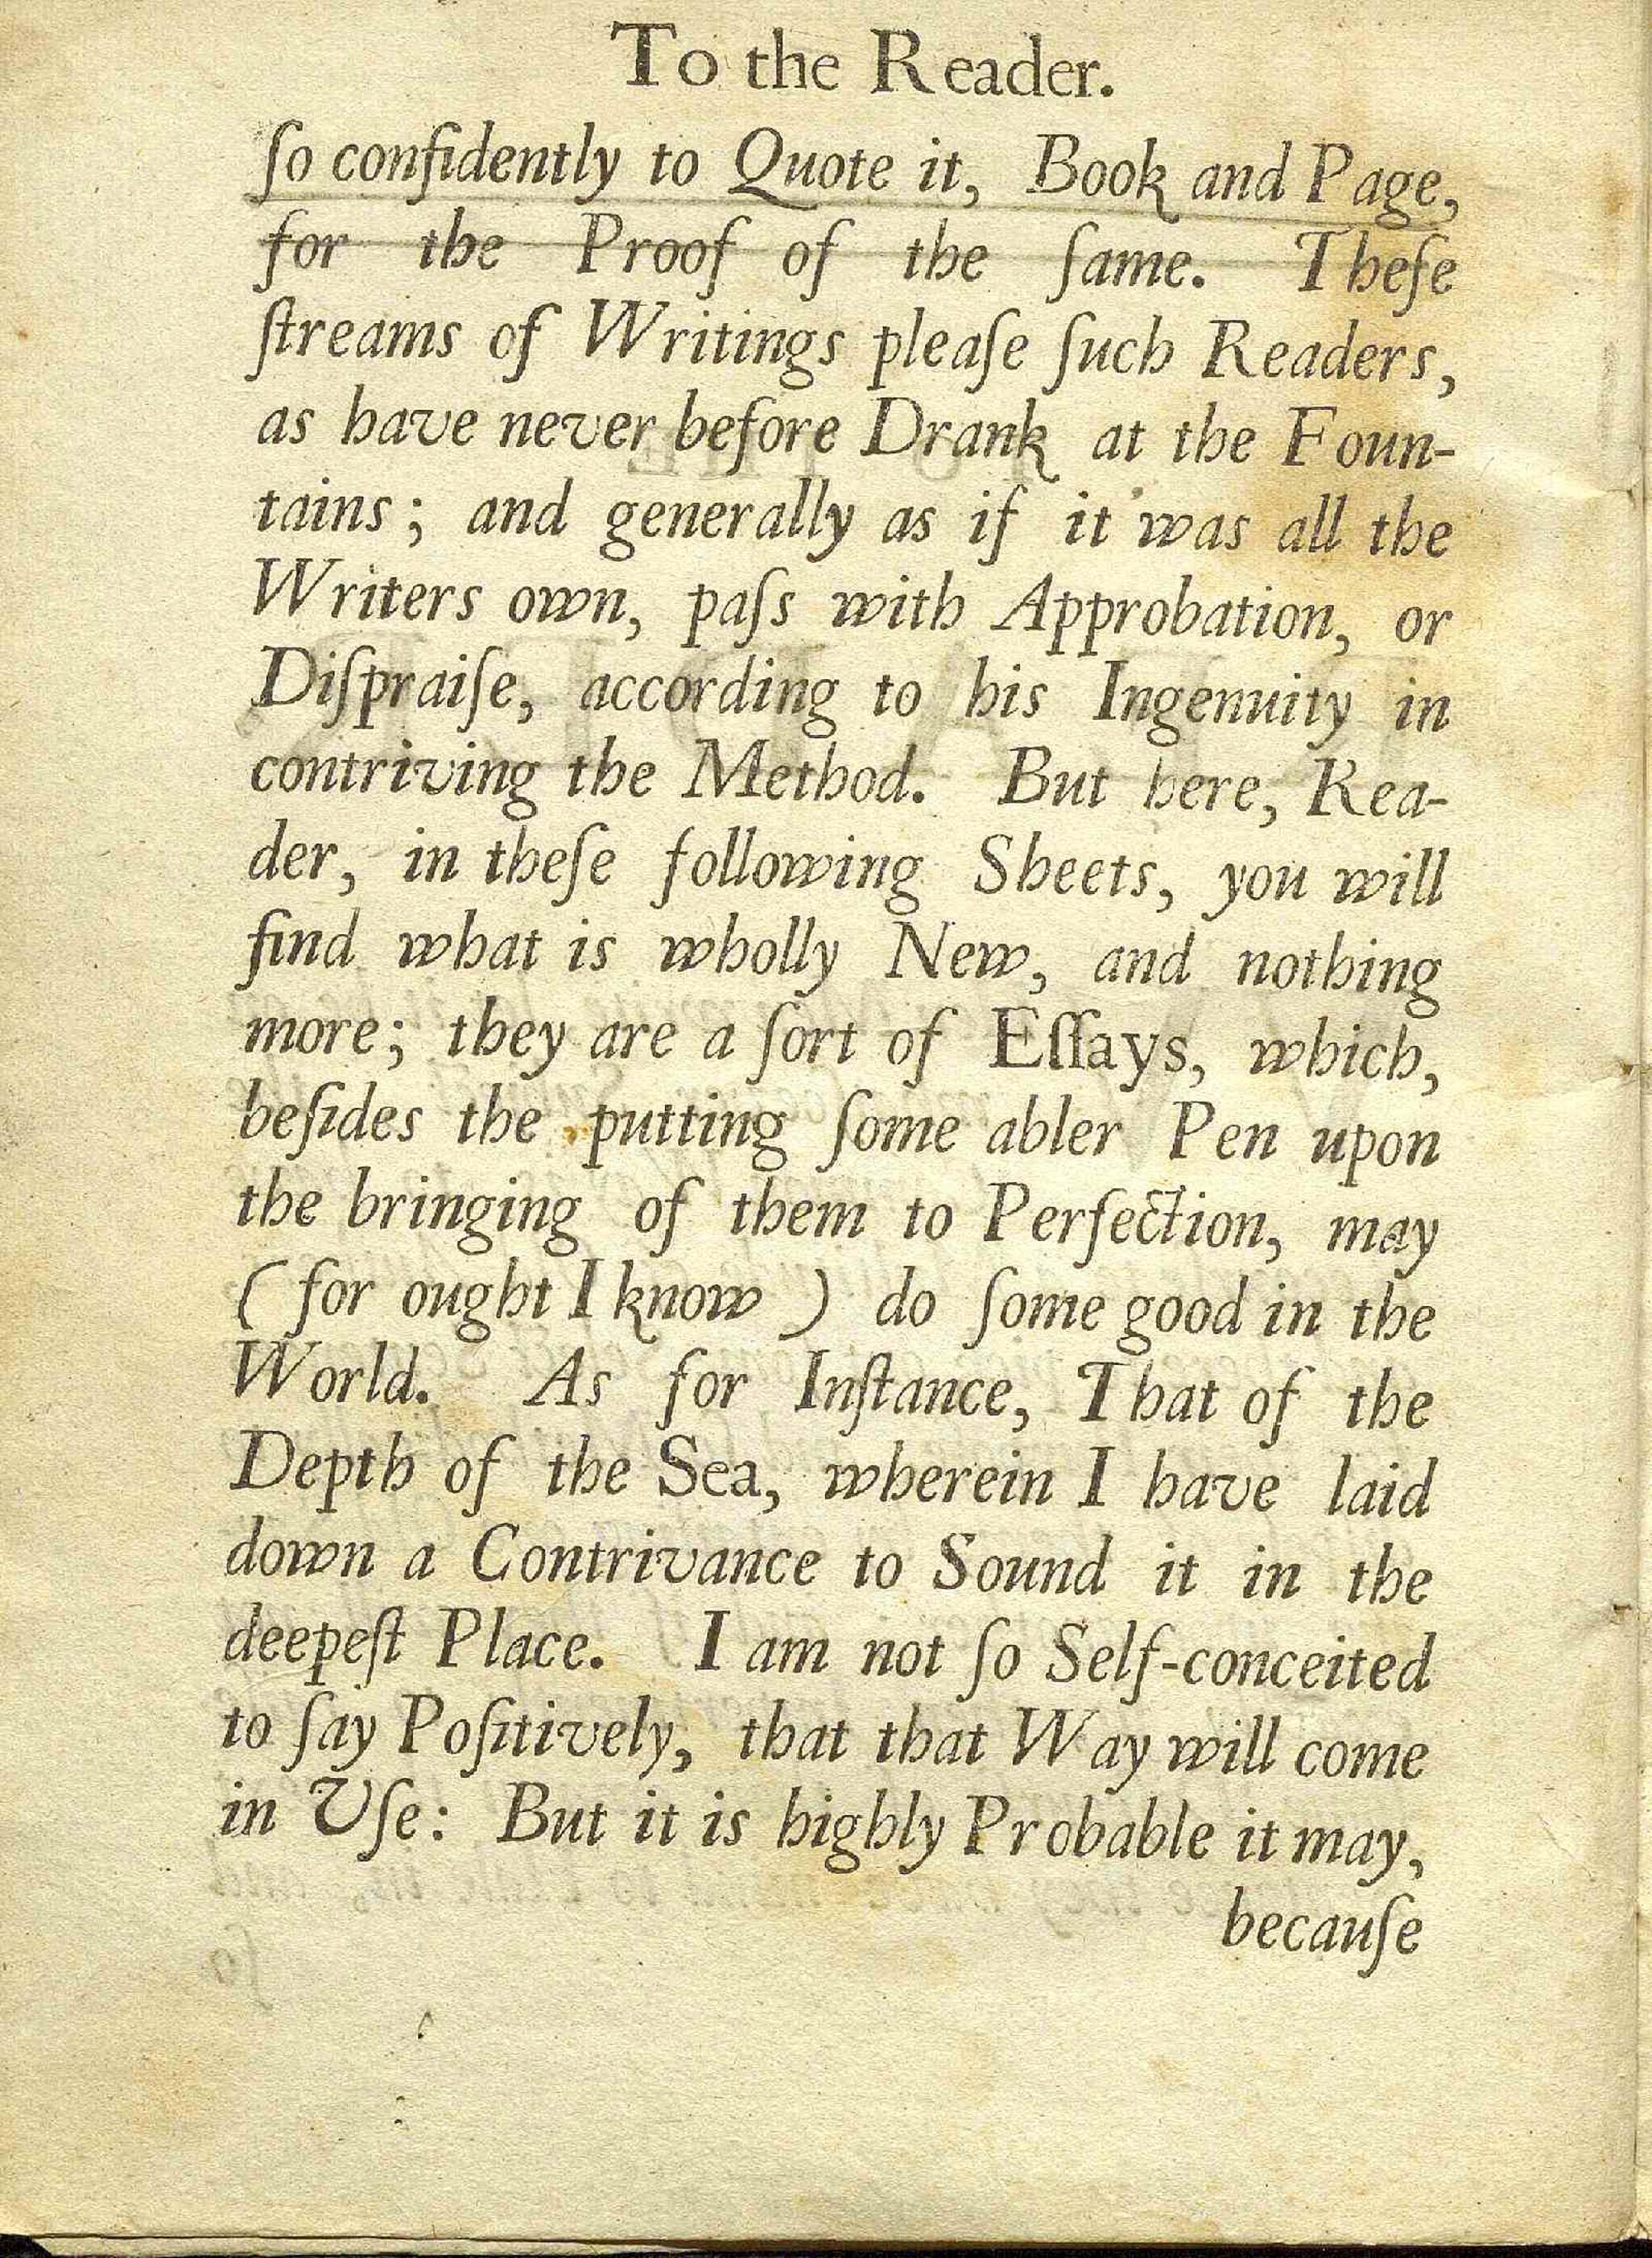 To the Reader.
ſo confidently to Quote it, Book and Page,
for the Proof of the ſame. Theſe
ſtreams of Writings pleaſe ſuch Readers,
as have never before Drank at the Foun-
tains; and generally as if it was all the
Writers own, paſs with Approbation, or
Diſpraiſe, according to his Ingenuity in
contriving the Method. But here, Rea-
der, in theſe following Sheets, you will
find what is wholly New, and nothing
more; they are a ſort of Eſſays, which,
beſides the putting ſome abler Pen upon
the bringing of them to Perfection, may
( for ought I know ) do ſome good in the
World. As for Inſtance, That of the
Depth of the Sea, wherein I have laid
down a Contrivance to Sound it in the
deepeſt Place. I am not ſo Self-conceited
to ſay Poſitively, that that Way will come
in Uſe: But it is highly Probable it may,
becauſe